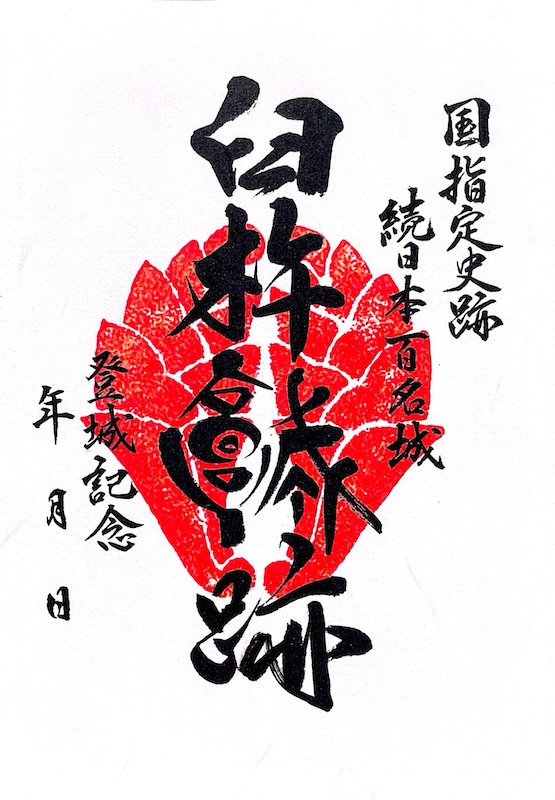 国指定史跡
続日本百名城
臼杵城跡
登城記念
年 月 日